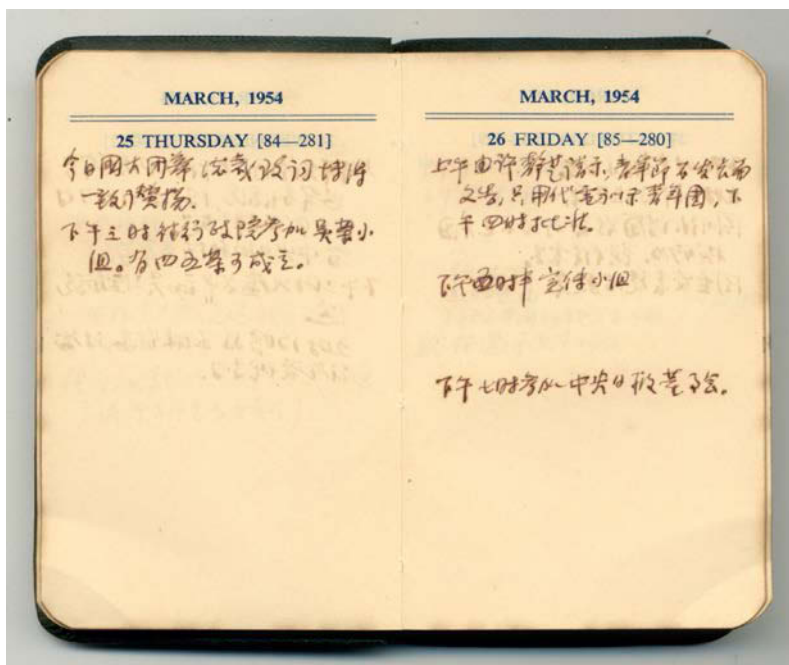 MARCH, 1954
25 THURSDAY [84—281]
今日國大闭幕,总裁致词博得
一致赞扬.
下午三时往行政院参加吴案小
组。有四五案可成立.
MARCH, 1954
26 FRIDAY [85—280]
上午由许静芝请示,青年节不发表
文告,只用代电训示青年团,下
午四时批准.
下午五时半宣传小组
下午七时参加中央日报董事会.